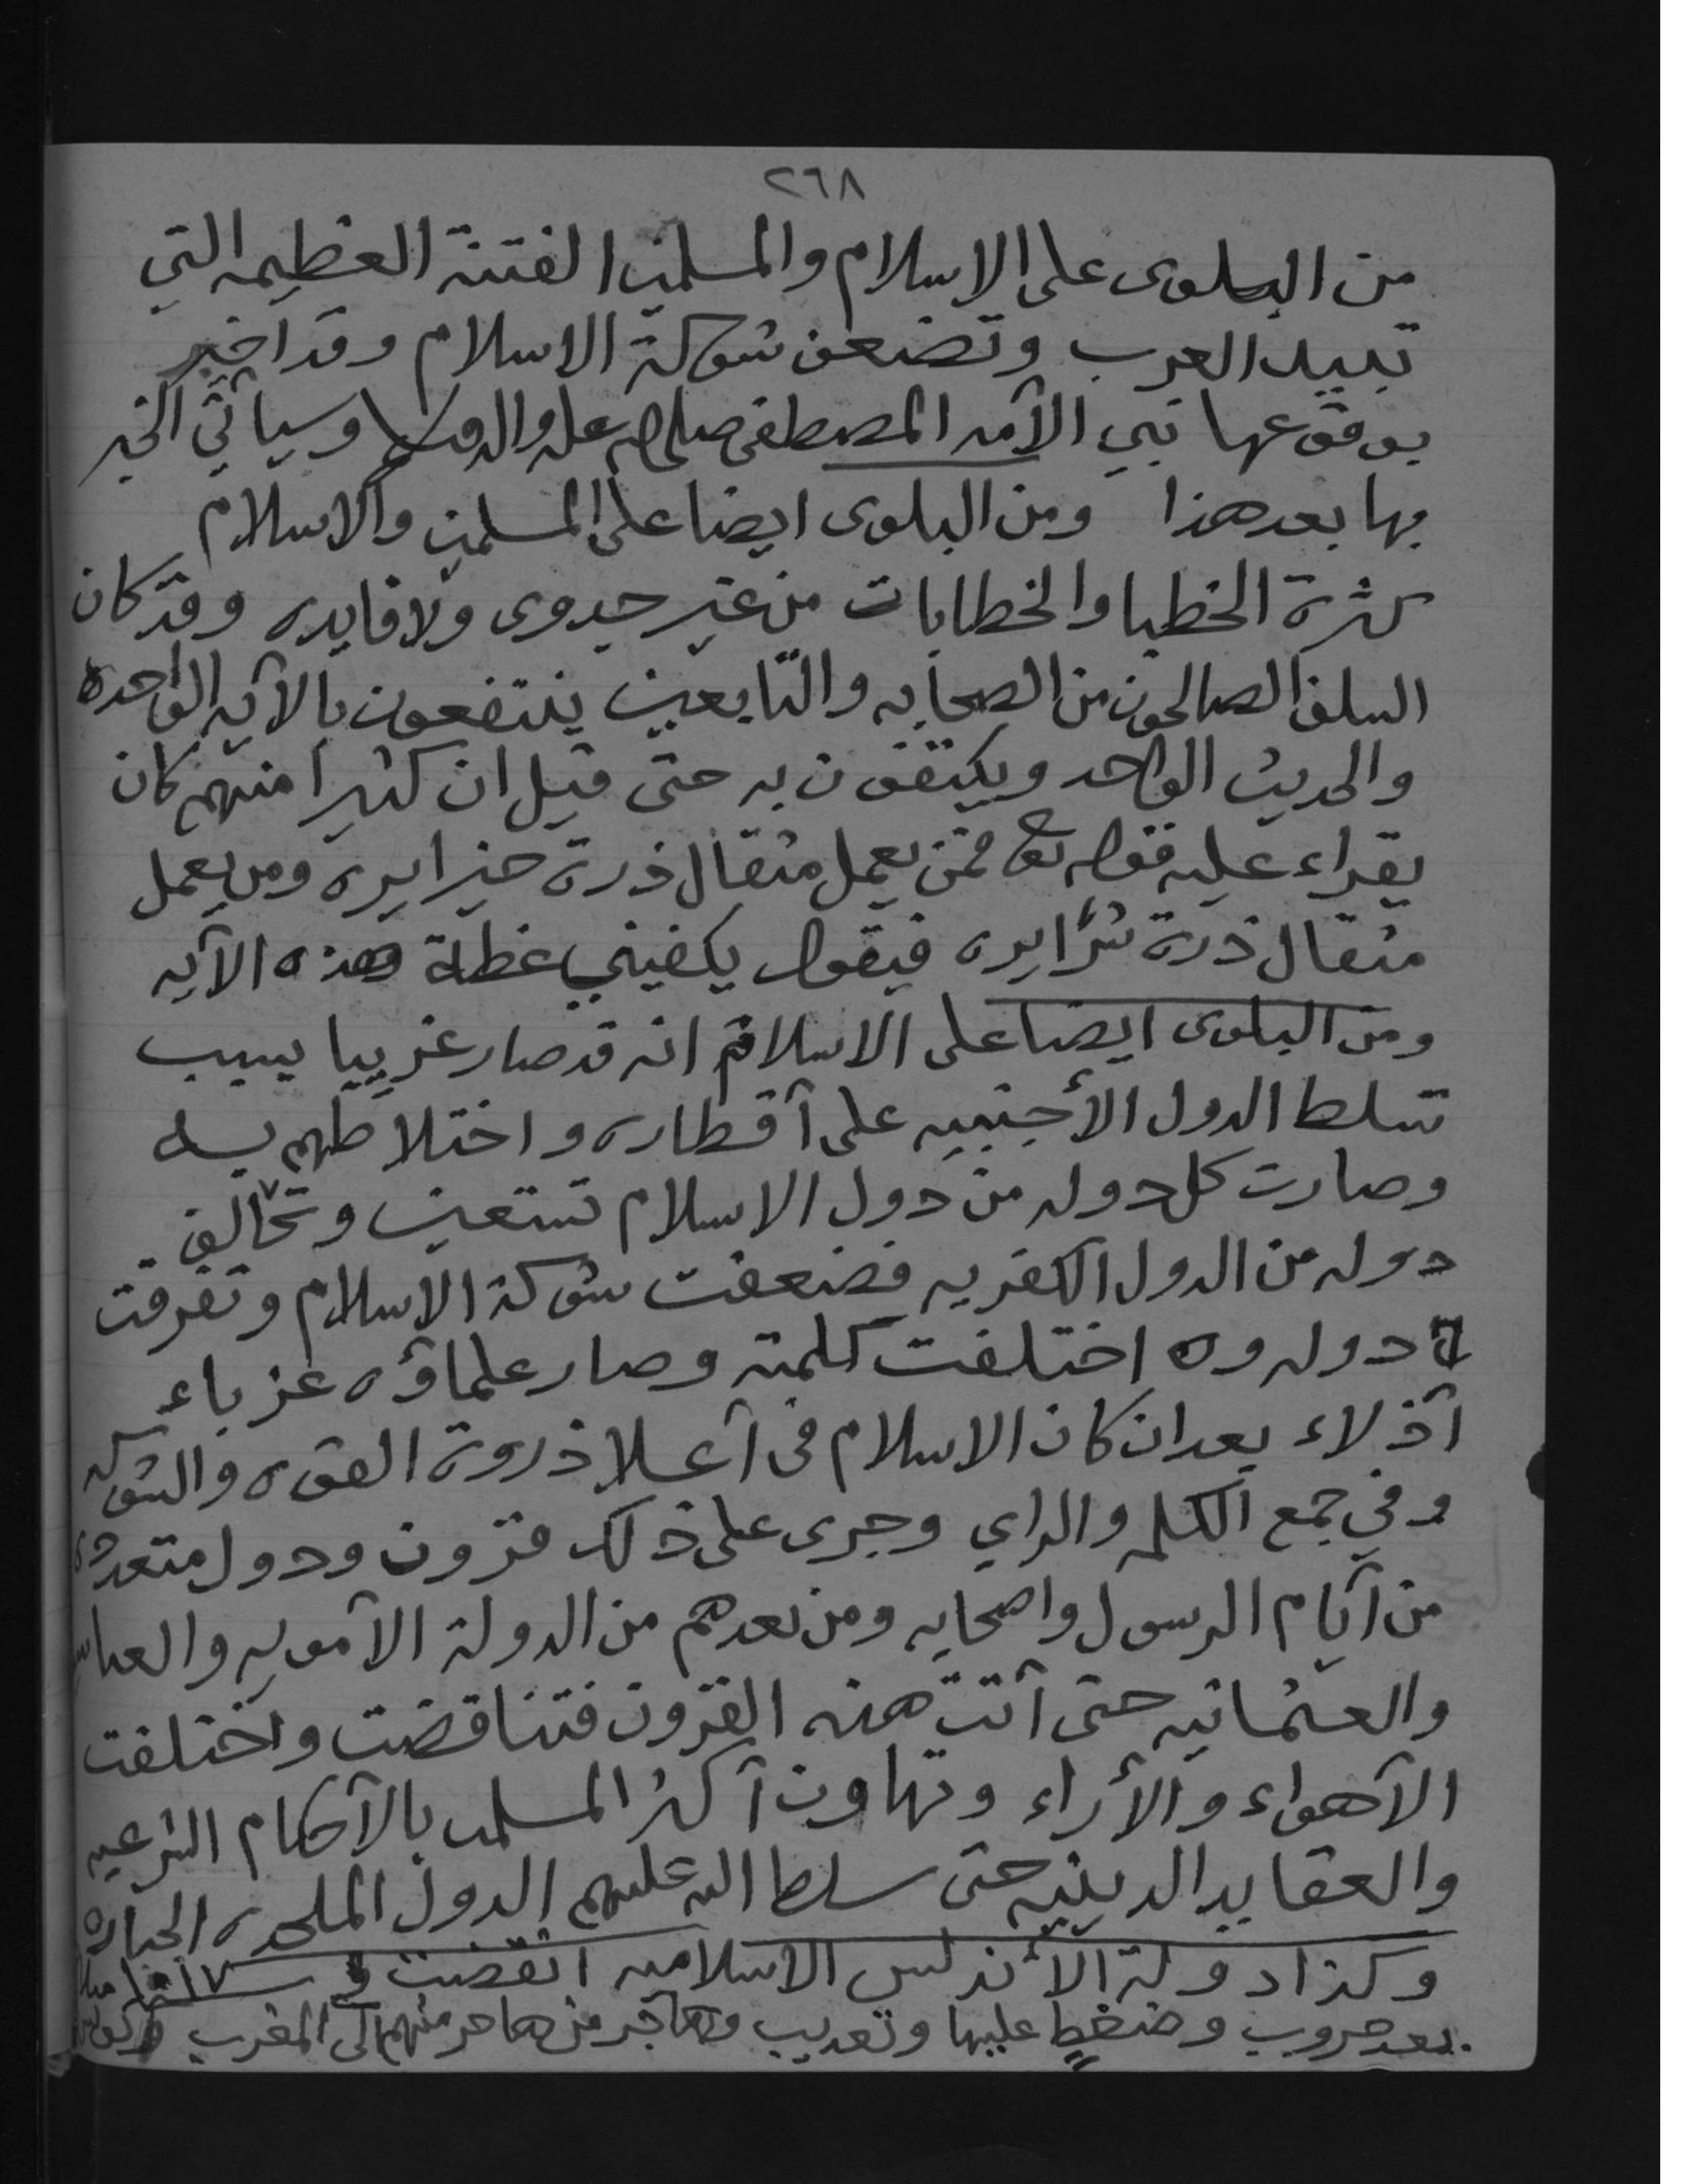 ٢٦٨
من البلوى على الاسلام والمسلمين الفتنة العظيمه التي
تبيد العرب وتضعف شوكة الاسلام وقد اخبر
بوقوعها نبي الأمه المصطفى صلى الله عليه واله وسلم وسيأتي الخبر
بها بعد هذا ومن البلوى ايضا على المسلمين والاسلام
كثرة الخطبا والخطابات من غير جدوى ولا فايده وقد كان
السلف الصالحون من الصحابه والتابعين ينتفعون بالآيه الواحده
والحديث الواحد ويكتفون به حتى قيل ان كثيرا منهم كان
يقراء عليه قوله تع فمن يعمل مثقال ذرة خيرا يره ومن يعمل
مثقال ذرة شرًا يره فيقول يكفيني عظة هذه الآيه
ومن البلوى ايضا على الاسلام انه قد صار غريبا بسبب
تسلط الدول الأجنبيه على أقطاره واختلاطهم به
وصارت كل دوله من دول الاسلام تستعين وتحالف
دوله من الدول الكفريه فضعفت شوكة الاسلام وتفرقت
دوله و اختلفت كلمته وصار علماؤه غرباء
أذلاء بعد ان كان الاسلام فى أعلا ذروة القوه والشوكه
وفي جمع الكلمه والراي وجرى على ذلك قرون ودول متعدده
من أيام الرسول واصحابه ومن بعدهم من الدولة الأمويه
والعثمانيه حتى أتت هذه القرون فتناقضت واختلفت
الأهواء والأراء وتهاون أكثر المسلمين بالأحكام الشرعيه
والعقايد الدينيه حتى سلط الله عليهم الدول الملحده
وكذا دولة الأندلس الاسلاميه انقضت
بعد حروب وضغط عليها وتعذيب وهاجر من هاجر منهم الى المغرب